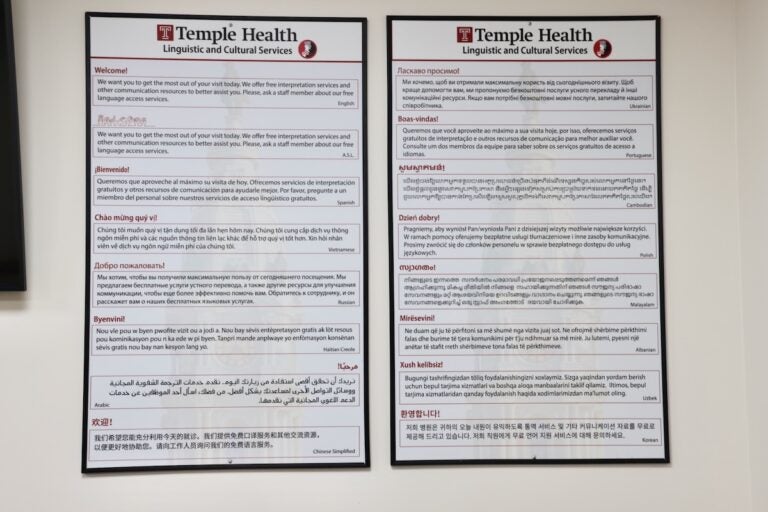 Temple Health
Linguistic and Cultural Services
Welcome!
We want you to get the most out of your visit today. We offer free interpretation services and
other communication resources to better assist you. Please, ask a staff member about our free
language access services.
English
We want you to get the most out of your visit today. We offer free interpretation services and
other communication resources to better assist you. Please, ask a staff member about our free
language access services.
A.S.L.
¡Bienvenido!
Queremos que aproveche al máximo la visita de hoy. Ofrecemos servicios de interpretación
gratuitos y otros recursos de comunicación para ayudarle mejor. Por favor, pregunte a un
miembro del personal sobre nuestros servicios de acceso lingüístico gratuitos.
Spanish
Chào mừng quý vị!
Chúng tôi muốn quý vị tận dụng tối đa lần hẹn hôm nay. Chúng tôi cung cấp dịch vụ thông
ngôn miễn phí và các nguồn thông tin liên lạc khác để hỗ trợ quý vị tốt hơn. Xin hỏi nhân
viên về dịch vụ ngôn ngữ miễn phí của chúng tôi.
Vietnamese
Добро пожаловать!
Мы хотим, чтобы вы получили максимальную пользу от сегодняшнего посещения. Мы
предлагаем бесплатные услуги устного перевода, а также другие ресурсы для улучшения
коммуникации, чтобы еще более эффективно помочь вам. Обратитесь к сотруднику, и он
расскажет вам о наших бесплатных языковых услугах.
Russian
Byenvini!
Nou vle pou w byen pwofite vizit ou a jodi a. Nou bay sèvis entèpretasyon gratis ak lòt resous
pou kominikasyon pou n ka ede w pi byen. Tanpri mande anplwaye yo enfòmasyon konsènan
sèvis gratis nou bay nan kesyon lang yo.
Haitian Creole
مرحبًا!
نريدك أن تحقق أقصى استفادة من زيارتك اليوم. نقدم خدمات الترجمة الشفوية المجانية
ووسائل التواصل الأخرى لمساعدتك بشكل أفضل. من فضلك، اسأل أحد الموظفين عن خدمات
الدعم اللغوي المجانية التي نقدمها.
Arabic
欢迎！
我们希望您能充分利用今天的就诊。我们提供免费口译服务和其他交流资源，
以便更好地协助您。请向工作人员询问我们的免费语言服务。
Chinese Simplified
Temple Health
Linguistic and Cultural Services
Ласкаво просимо!
Ми хочемо, щоб ви отримали максимальну користь від сьогоднішнього візиту. Щоб
краще допомогти вам, ми пропонуємо безкоштовні послуги усного перекладу й інші
комунікаційні ресурси. Якщо вам потрібні безкоштовні мовні послуги, запитайте нашого
співробітника.
Ukrainian
Boas-vindas!
Queremos que você aproveite ao máximo a sua visita hoje, por isso, oferecemos serviços
gratuitos de interpretação e outros recursos de comunicação para melhor auxiliar você.
Consulte um dos membros da equipe para saber sobre os serviços gratuitos de acesso a
idiomas.
Portuguese
Cambodian
Dzień dobry!
Pragniemy, aby wyniósł Pan/wyniosła Pani z dzisiejszej wizyty możliwie największe korzyści.
W ramach pomocy oferujemy bezpłatne usługi tłumaczeniowe i inne zasoby komunikacyjne.
Prosimy zwrócić się do członków personelu w sprawie bezpłatnego dostępu do usług
językowych.
Polish
സ്വാഗതം!
Malayalam
Mirësevini!
Ne duam që ju të përfitoni sa më shumë nga vizita juaj sot. Ne ofrojmë shërbime përkthimi
falas dhe burime të tjera komunikimi për t'ju ndihmuar sa më mirë. Ju lutemi, pyesni një
anëtar të stafit rreth shërbimeve tona falas të përkthimeve.
Albanian
Xush kelibsiz!
Bugungi tashrifingizdan to'liq foydalanishingizni xoxlaymiz. Sizga yaqindan yordam berish
uchun bepul tarjima xizmatlari va boshqa aloqa manbaalarini taklif qilamiz. Iltimos, bepul
tarjima xizmatlaridan qanday foydalanish haqida xodimlarimizdan ma'lumot oling.
Uzbek
환영합니다!
저희 병원은 귀하의 오늘 내원이 유익하도록 통역 서비스 및 기타 커뮤니케이션 자료를 무료로
제공해 드리고 있습니다. 저희 직원에게 무료 언어 지원 서비스에 대해 문의하세요.
Korean